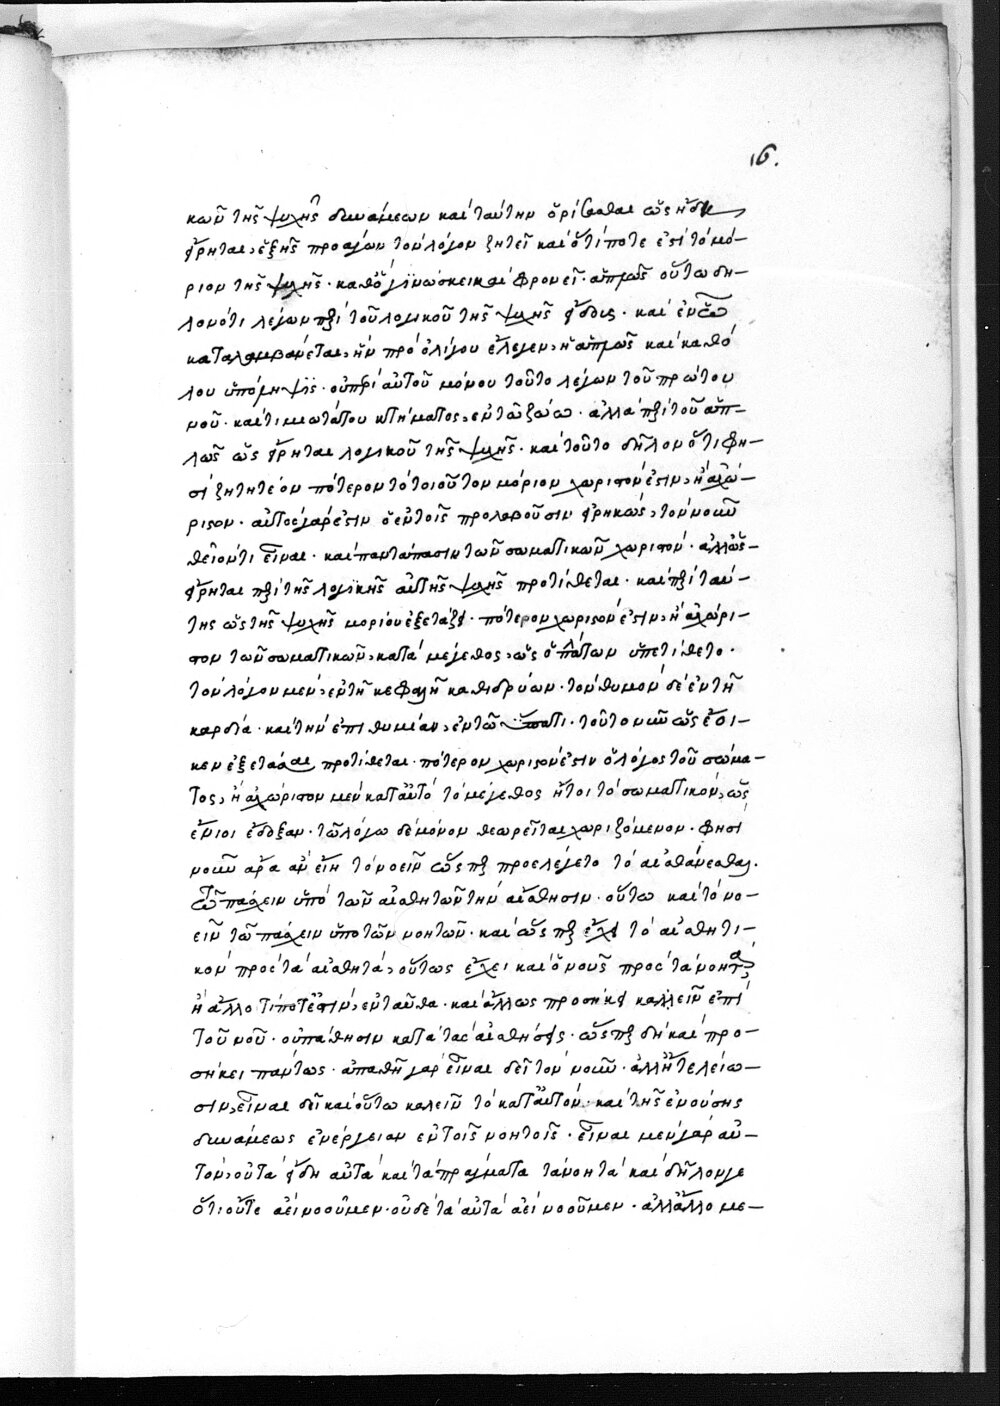 16.
κῶν τῆς ψυχῆς δυνάμεων καὶ ταύτην ὁρίσασθαι ὡς ἤδη
εἴρηται, ἑξῆς προάγων τὸν λόγον ζητεῖ καὶ ὅ τί ποτέ ἐστι τὸ μό-
ριον τῆς ψυχῆς · καθὸ γινώσκει καὶ φρονεῖ · ἁπλῶς οὕτω δη-
λονότι λέγων περὶ τοῦ λογικοῦ τῆς ψυχῆς εἴδους · καὶ ἐν ᾧ
καταλαμβάνεται, ἣν πρὸ ὀλίγου ἔλεγεν, ἢ ἁπλῶς καὶ καθό-
λου ὑπόληψις · οὐ περὶ αὐτοῦ μόνου τοῦτο λέγων τοῦ πρώτου
νοῦ · καὶ τιμιωτάτου κτήματος, ἐν τῷ ζώῳ · ἀλλὰ περὶ τοῦ ἁπ-
λῶς ὡς εἴρηται λογικοῦ τῆς ψυχῆς · καὶ τοῦτο δῆλον ὅτι φη-
σὶ ζητητέον πότερον τὸ τοιοῦτον μόριον χωριστόν ἐστιν, ἢ ἀχώ-
ριστον · αὐτὸς γάρ ἐστιν ὁ ἐν τοῖς προλαβοῦσιν εἰρηκώς, τὸν νοῦν
θεῖόν τι εἶναι · καὶ παντάπασιν τῶν σωματικῶν χωριστόν · ἀλλ' ὡς
εἴρηται περὶ τῆς λογικῆς αὐτῆς ψυχῆς προτίθεται · καὶ περὶ ταύ-
της ὡς τῆς ψυχῆς μορίου ἐξετάζει · πότερον χωριστόν ἐστιν, ἢ ἀχώρι-
στον τῶν σωματικῶν, κατὰ μέγεθος, ὡς ὁ πλάτων ὑπετίθετο ·
τὸν λόγον μὲν, ἐν τῇ κεφαλῇ καθιδρύων · τὸν θυμὸν δὲ ἐν τῇ
καρδίᾳ · καὶ τὴν ἐπιθυμίαν, ἐν τῷ ἥπατι · τοῦτο νῦν ὡς ἔοι-
κεν ἐξετάσαι προτίθεται · πότερον χωριστόν ἐστιν ὁ λόγος τοῦ σώμα-
τος, ἢ ἀχώριστον μὲν κατ' αὐτὸ τὸ μέγεθος ἤτοι τὸ σωματικόν, ὡς
ἔνιοι ἔδοξαν · τῷ λόγῳ δὲ μόνον θεωρεῖται χωριζόμενον · φησὶ
νοῦν ἄρα ἂν εἴη τὸ νοεῖν ὥσπερ προελέγετο τὸ αἰσθάνεσθαι ·
τῷ πάσχειν ὑπὸ τῶν αἰσθητῶν τὴν αἴσθησιν · οὕτω καὶ τὸ νο-
εῖν τῷ πάσχειν ὑπὸ τῶν νοητῶν · καὶ ὥσπερ ἔχει τὸ αἰσθητι-
κὸν πρὸς τὰ αἰσθητά, οὕτως ἔχει καὶ ὁ νοῦς πρὸς τὰ νοητά,
ἢ ἄλλο τί ποτέ ἐστιν, ἐνταῦθα · καὶ ἄλλως προσήκει καλλεῖν ἐπὶ
τοῦ νοῦ · οὐ πάθησιν κατὰ τὰς αἰσθήσεις · ὥσπερ δὴ καὶ προ-
σήκει πάντως · ἀπαθῆ γὰρ εἶναι δεῖ τὸν νοῦν · ἀλλ' ἢ τελείω-
σιν, εἶναι δεῖ καὶ οὕτω καλεῖν τὸ κατ' αὐτὸν · καὶ τῆς ἐνούσης
δυνάμεως ἐνέργειαν ἐν τοῖς νοητοῖς · εἶναι μὲν γὰρ αὐ-
τὸν, οὐ τὰ εἴδη αὐτὰ καὶ τὰ πράγματα τὰ νοητὰ καὶ δῆλόν γε
ὅτι οὔτε ἀεὶ νοοῦμεν · οὐδὲ τὰ αὐτὰ ἀεὶ νοοῦμεν · ἀλλ' ἄλλο με-